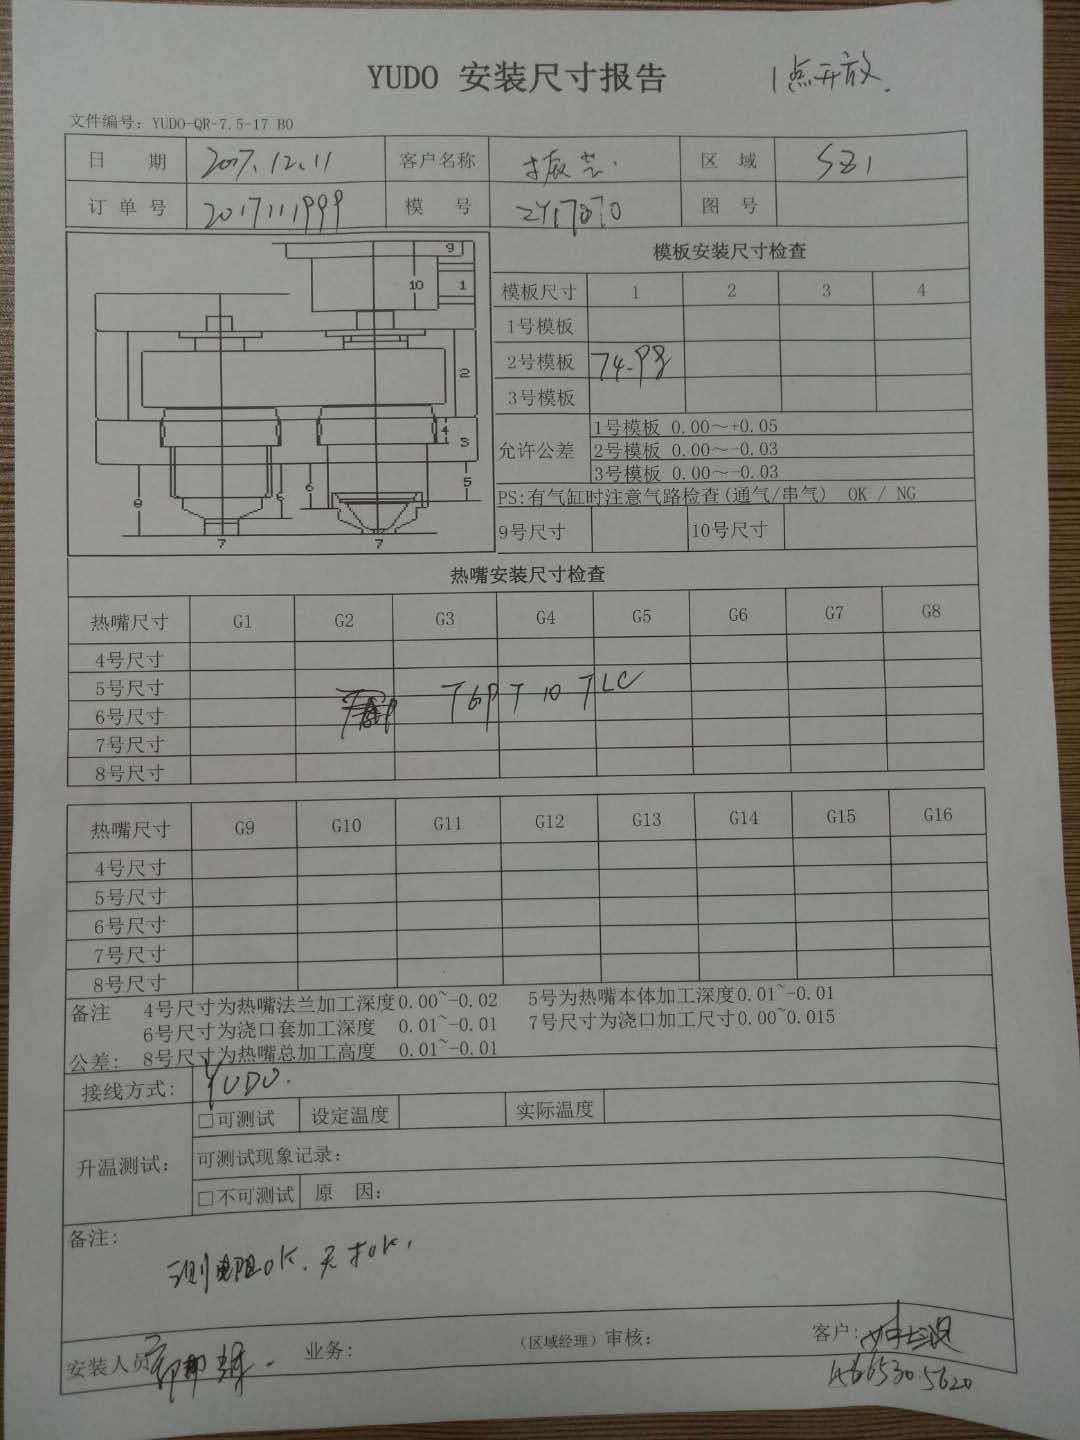 YUDO 安装尺寸报告 1点开放.
文件编号: YUDO-QR-7.5-17 B0
日 期 2017.12.11 客户名称 区 域 SZ1
订 单 号 2017111999 模 号 ZY17070 图 号
9
10 1
2
4 3
5
8 6 6
7 7
模板安装尺寸检查
模板尺寸 1 2 3 4
1号模板
2号模板 74.98
3号模板
允许公差 1号模板 0.00～+0.05
2号模板 0.00～-0.03
3号模板 0.00～-0.03
PS:有气缸时注意气路检查(通气/串气) OK / NG
9号尺寸 10号尺寸
热嘴安装尺寸检查
热嘴尺寸 G1 G2 G3 G4 G5 G6 G7 G8
4号尺寸
5号尺寸
6号尺寸 TGP T 10 TLC
7号尺寸
8号尺寸
热嘴尺寸 G9 G10 G11 G12 G13 G14 G15 G16
4号尺寸
5号尺寸
6号尺寸
7号尺寸
8号尺寸
备注 4号尺寸为热嘴法兰加工深度0.00~-0.02 5号为热嘴本体加工深度0.01~-0.01
6号尺寸为浇口套加工深度 0.01~-0.01 7号尺寸为浇口加工尺寸0.00~0.015
公差: 8号尺寸为热嘴总加工高度 0.01~-0.01
接线方式: YUDO.
升温测试: □可测试 设定温度 实际温度
可测试现象记录:
□不可测试 原 因:
备注:
测电阻OK.
安装人员 业务: (区域经理)审核: 客户: